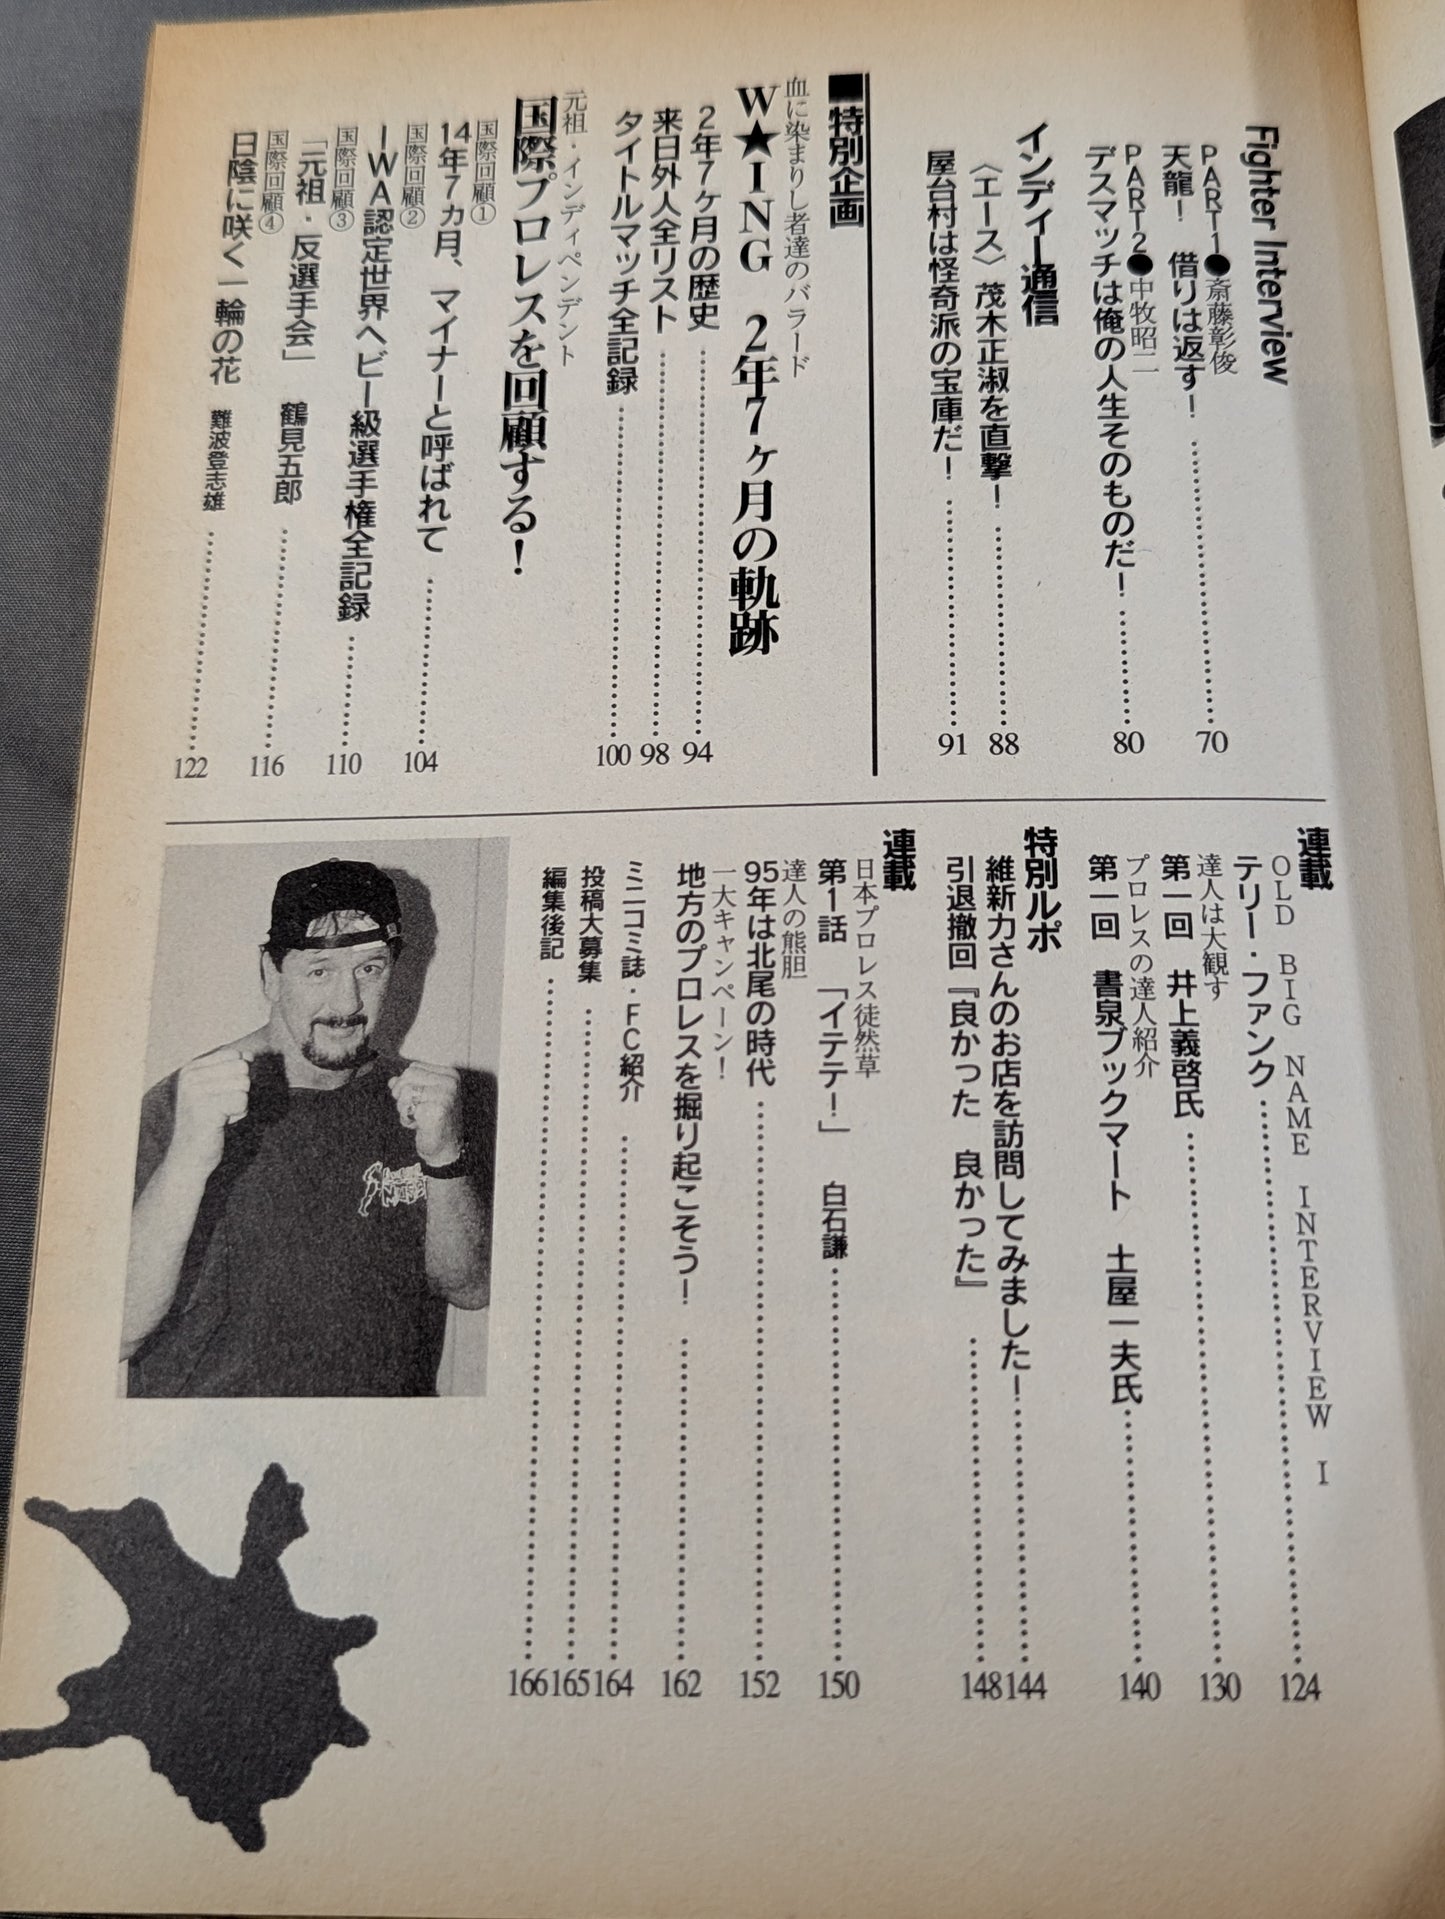 Fighter Interview
PART1●斎藤彰俊
天龍！　借りは返す！ ……… 70
PART2●中牧昭二
デスマッチは俺の人生そのものだ！ ……… 80
インディー通信
〈エース〉茂木正淑を直撃！ ……… 88
屋台村は怪奇派の宝庫だ！ ……… 91
■特別企画
血に染まりし者達のバラード
W★ING　2年7ヶ月の軌跡
2年7ヶ月の歴史 ……… 94
来日外人全リスト ……… 98
タイトルマッチ全記録 ……… 100
元祖・インディペンデント
国際プロレスを回顧する！
国際回顧①
14年7カ月、マイナーと呼ばれて ……… 104
国際回顧②
IWA認定世界ヘビー級選手権全記録 ……… 110
国際回顧③
「元祖・反選手会」　鶴見五郎 ……… 116
国際回顧④
日陰に咲く一輪の花　難波登志雄 ……… 122
連載
OLD BIG NAME INTERVIEW I
テリー・ファンク ……… 124
達人は大観す
第一回　井上義啓氏 ……… 130
プロレスの達人紹介
第一回　書泉ブックマート　土屋一夫氏 ……… 140
特別ルポ
維新力さんのお店を訪問してみました！ ……… 144
引退撤回『良かった　良かった』 ……… 148
連載
日本プロレス徒然草
第1話　「イテテ！」　白石謙 ……… 150
達人の熊胆
95年は北尾の時代 ……… 152
一大キャンペーン！
地方のプロレスを掘り起こそう！ ……… 162
ミニコミ誌・FC紹介 ……… 164
投稿大募集 ……… 165
編集後記 ……… 166